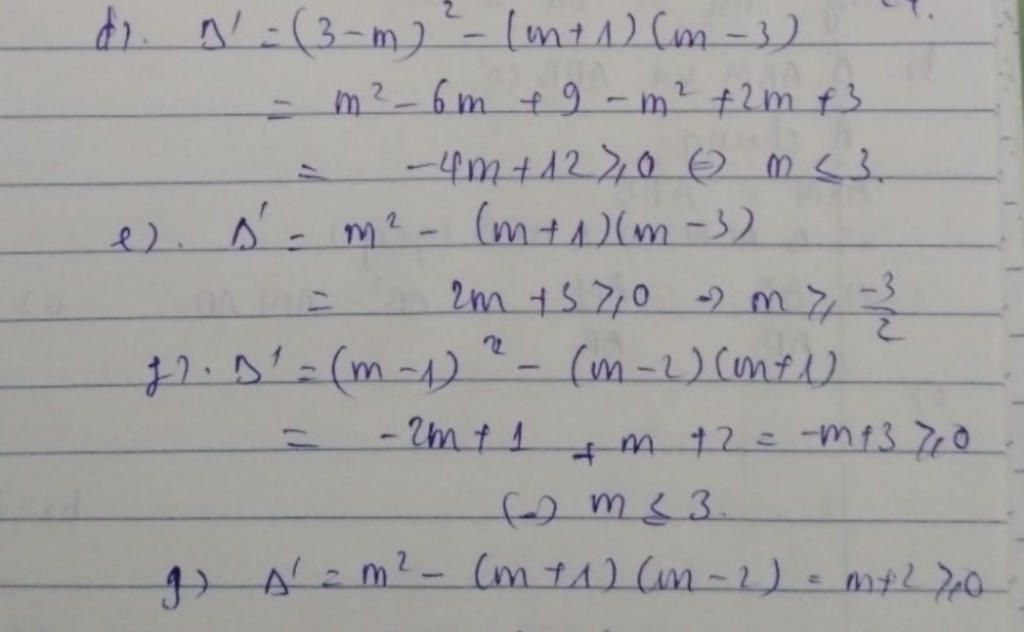 d). Δ' = (3-m)² - (m+1)(m-3)
= m² - 6m + 9 - m² + 2m + 3
= -4m + 12 ≥ 0 ⇔ m ≤ 3.
e). Δ' = m² - (m+1)(m-3)
= 2m + 3 ≥ 0 ⇒ m ≥ -3/2
f). Δ' = (m-1)² - (m-2)(m+1)
= -2m + 1 + m + 2 = -m+3 ≥ 0
⇔ m ≤ 3.
g) Δ' = m² - (m+1)(m-2) = m+2 ≥ 0